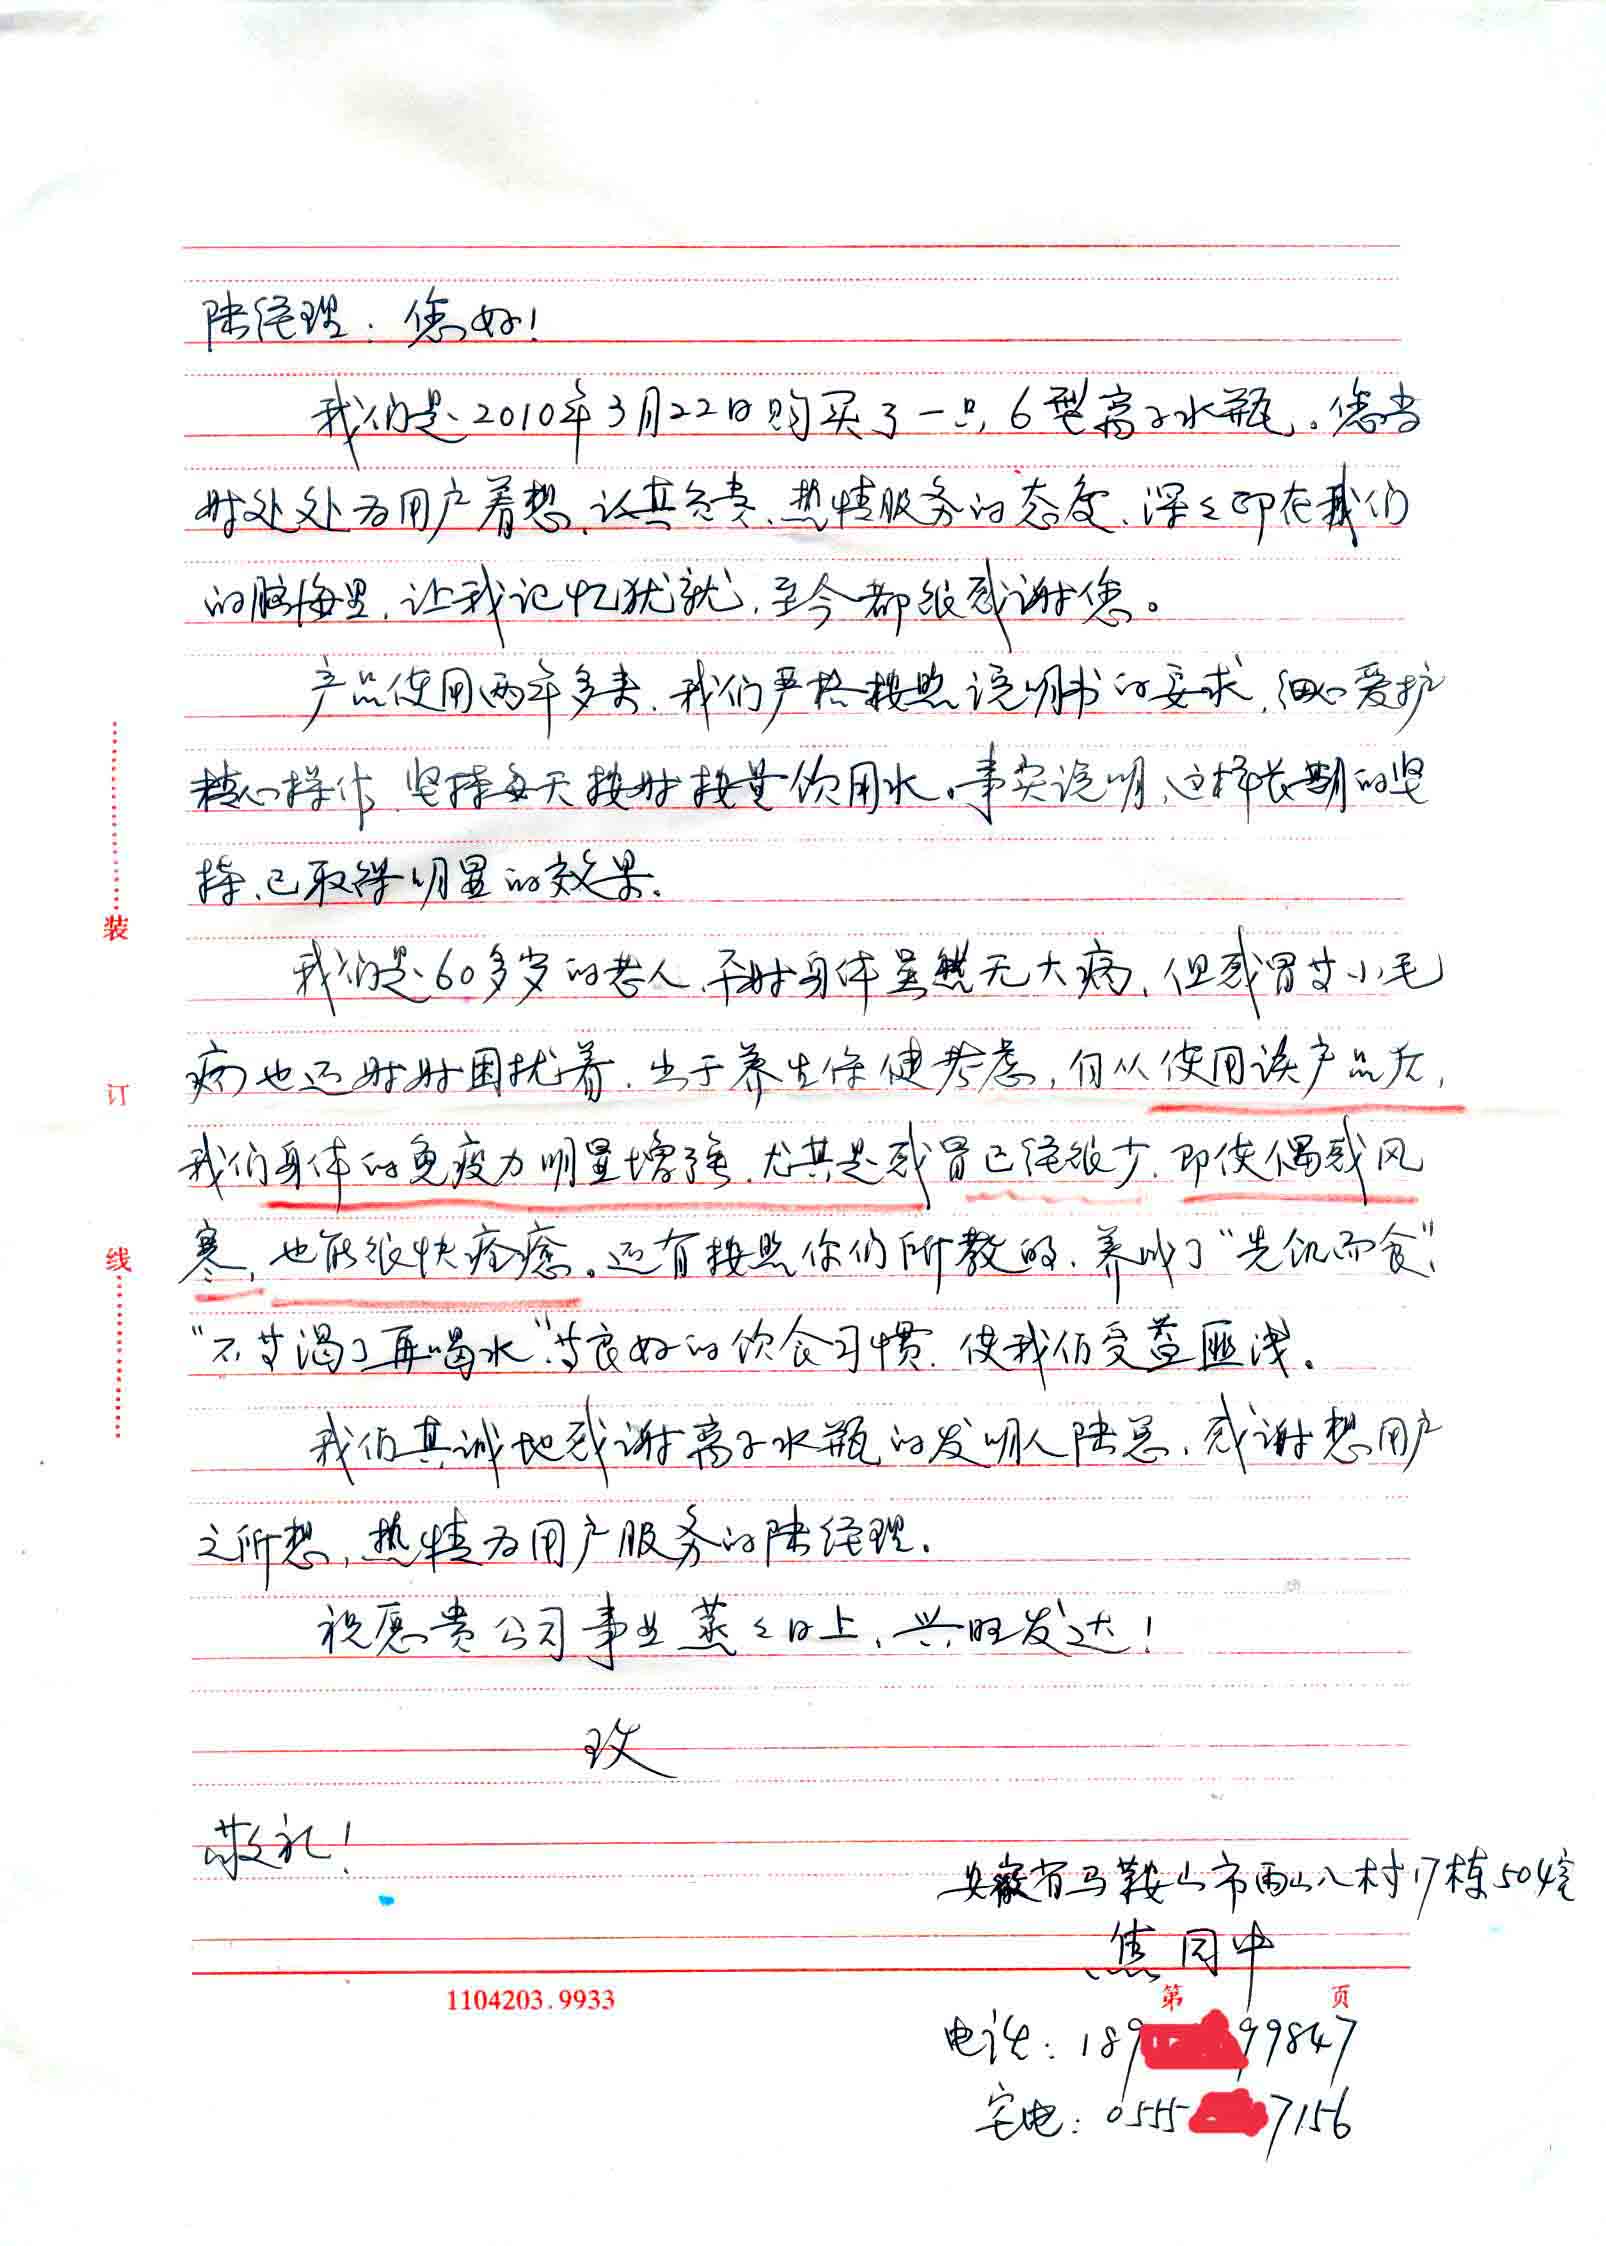 陆经理：您好！
我们是2010年3月22日购买了一只6型离子水瓶。您当
时处处为用户着想、认真负责、热情服务的态度、深々印在我们
的脑海里，让我记忆犹就，至今都很感谢您。
产品使用两年多来，我们严格按照说明书的要求，细心爱护
精心操作，坚持每天按时按量饮用水。事实说明，这样长期的坚
持、已取得明显的效果。
我们是60多岁的老人，平时身体虽然无大病，但感冒等小毛
病也还时时困扰着，出于养生保健考虑，自从使用该产品后，
我们身体的免疫力明显增强，尤其是感冒已经很少，即使偶感风
寒，也能很快痊愈。还有按照你们所教的，养成了“先饥而食”、
“不等渴了再喝水”等良好的饮食习惯，使我们受益匪浅。
我们真诚地感谢离子水瓶的发明人陆总，感谢想用户
之所想，热情为用户服务的陆经理。
祝愿贵公司事业蒸々日上，兴旺发达！
致
敬礼！
安徽省马鞍山市雨山八村17栋504室
焦同中
1104203.9933
第 页
电话：189 99847
宅电：0555 7156
装
订
线